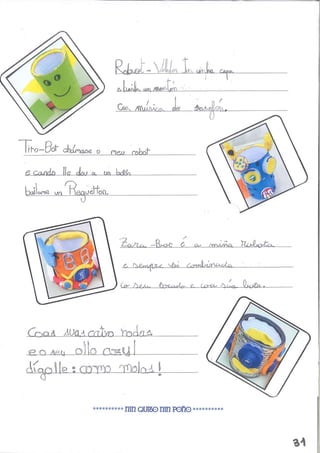 Robot - Valdu In unha capa
e baila un montón
Con música de Saxofón.
Tito-Bot chámase o meu robot
e cando lle dou a un botón
báilame un Reguetón.
Zara-Boc é a miña Robota
e sempre vai combinada
co seu tocado e coa súa bota.
Coas súas catro rodas
e o seu ollo azul
dígolle: como molas!
********** nin quito nin poño **********
31